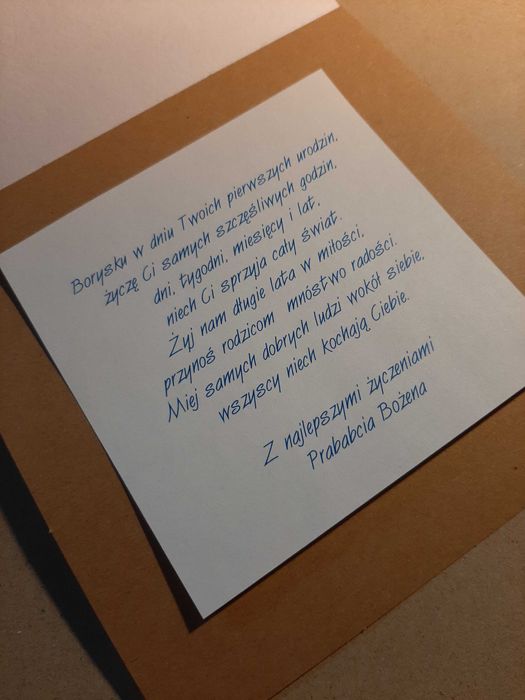 Borysku w dniu Twoich pierwszych urodzin,
życzę Ci samych szczęśliwych godzin,
dni, tygodni, miesięcy i lat,
niech Ci sprzyja cały świat.
Żyj nam długie lata w miłości,
przynoś rodzicom mnóstwo radości.
Miej samych dobrych ludzi wokół siebie,
wszyscy niech kochają Ciebie.
Z najlepszymi życzeniami
Prababcia Bożena